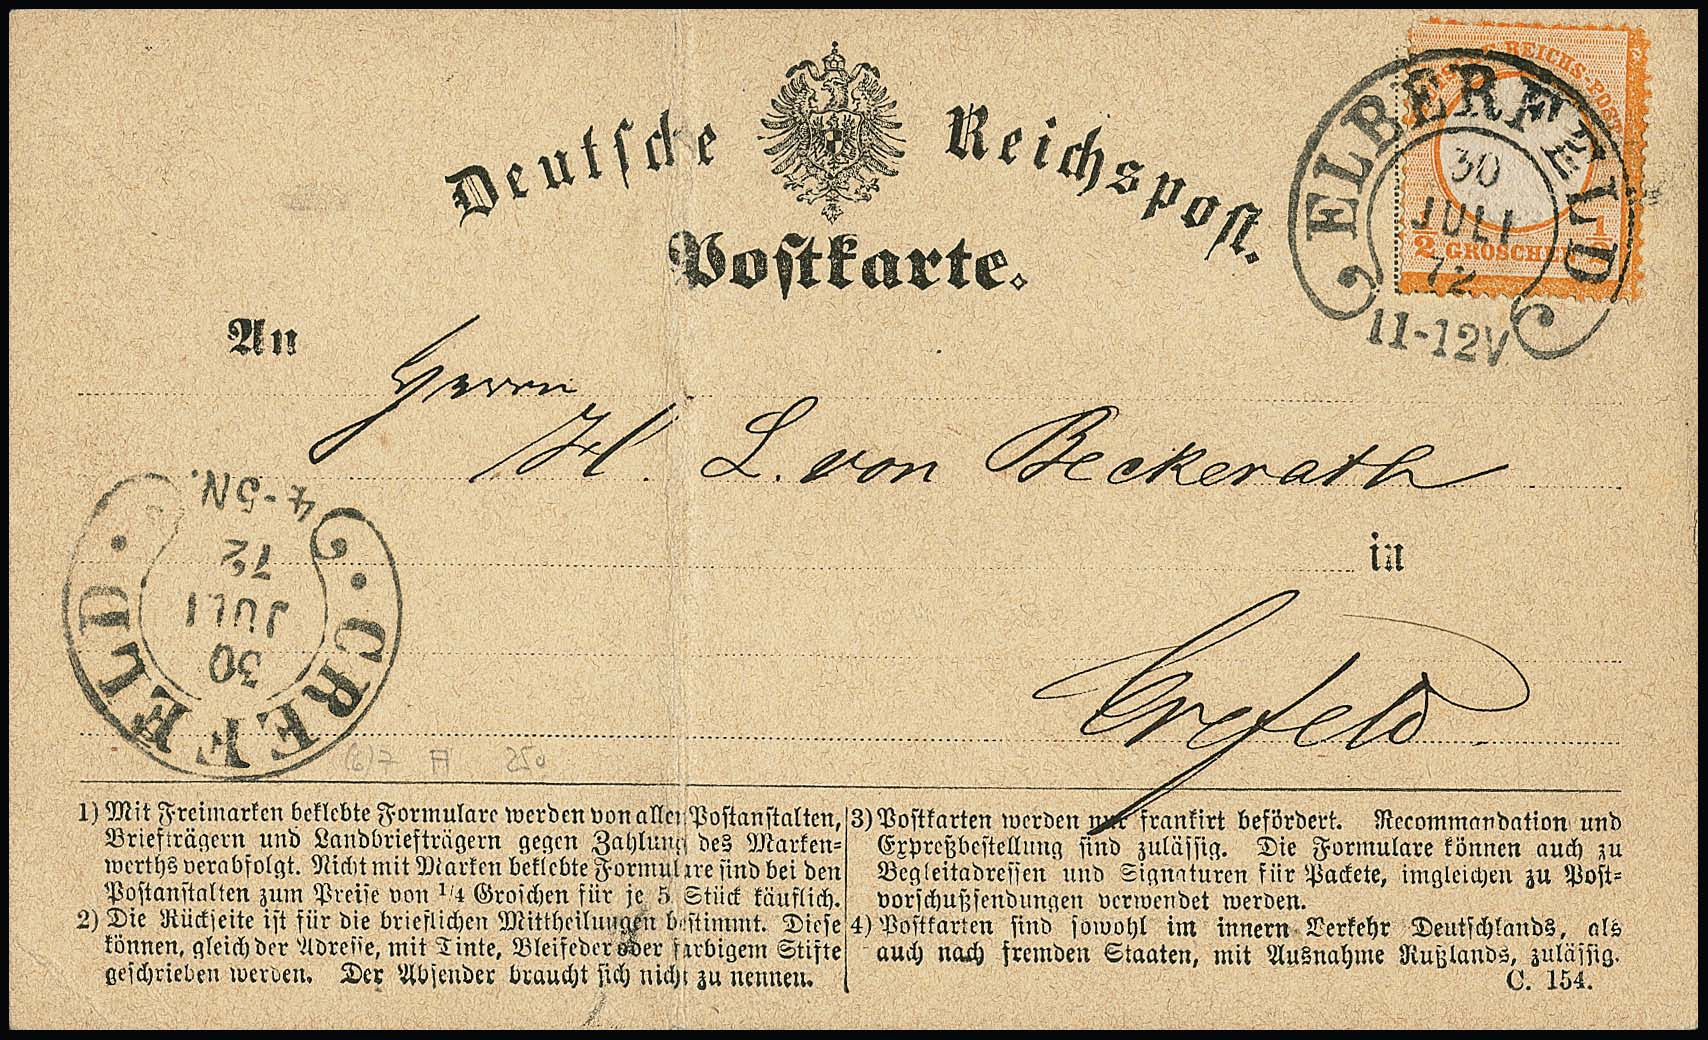 Deutsche Reichspost.
Postkarte.
REICHS-POST
1/2 GROSCHEN 1/2
ELBERFELD
30
JULI
72
11-12V
An
Herrn
H. L. von Beckerath
in
Crefeld.
CREFELD
30
JULI
72
4-5N.
(6)7 A 250
1) Mit Freimarken beklebte Formulare werden von allen Postanstalten,
Briefträgern und Landbriefträgern gegen Zahlung des Marken=
werths verabfolgt. Nicht mit Marken beklebte Formulare sind bei den
Postanstalten zum Preise von 1/4 Groschen für je 5 Stück käuflich.
2) Die Rückseite ist für die brieflichen Mittheilungen bestimmt. Diese
können, gleich der Adresse, mit Tinte, Bleifeder oder farbigem Stifte
geschrieben werden. Der Absender braucht sich nicht zu nennen.
3) Postkarten werden nur frankirt befördert. Recommandation und
Expreßbestellung sind zulässig. Die Formulare können auch zu
Begleitadressen und Signaturen für Packete, imgleichen zu Post=
vorschußsendungen verwendet werden.
4) Postkarten sind sowohl im innern Verkehr Deutschlands, als
auch nach fremden Staaten, mit Ausnahme Rußlands, zulässig.
C. 154.